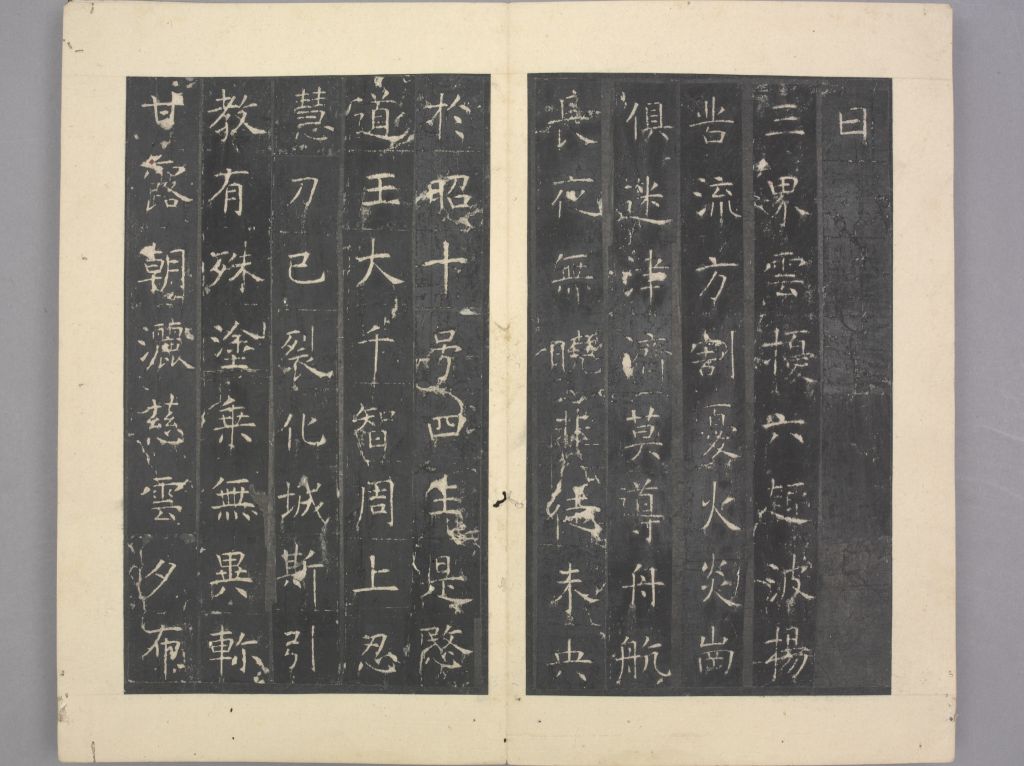 曰
三界雲擾六趣波揚
流方割憂火炎崗
俱迷津濟莫尊舟航
長夜無曉未央
於昭十号四生是愍
道王大千智周上忍
慧刀已裂化城斯引
教有殊塗乗無異軫
甘露朝灑慈雲夕布